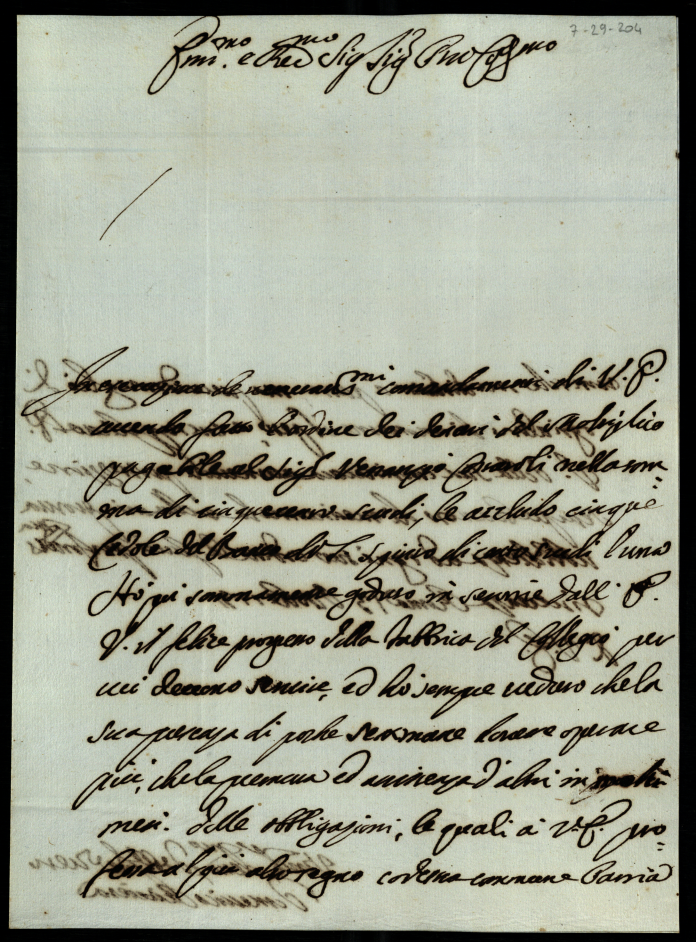 7-29-204
Emi.mo e Rev.mo Sig Sig Pne Col.mo
In esecuzione de veneratis.mi comandamenti di V. E.
avendo fatto l'ordine dei denari del Mobiglico
pagabile al Sig.r Venanzio Comaroli nella som=
ma di cinquecento scudi, le acchiudo cinque
Cedole del Banco di S. Spirito di cento scudi l'una
Hò poi sommamente goduto in sentire dall' E.
V. il felice progresso della fabbrica del Collegio per
cui devono servire, ed hò sempre veduto che la
sua presenza di poche settimane dovere operare
più, che la premura ed avvertenza d'altri in molti
mesi. Delle obbligazioni, le quali a V.E. pro=
fessa al più alto segno codesta comune Patria